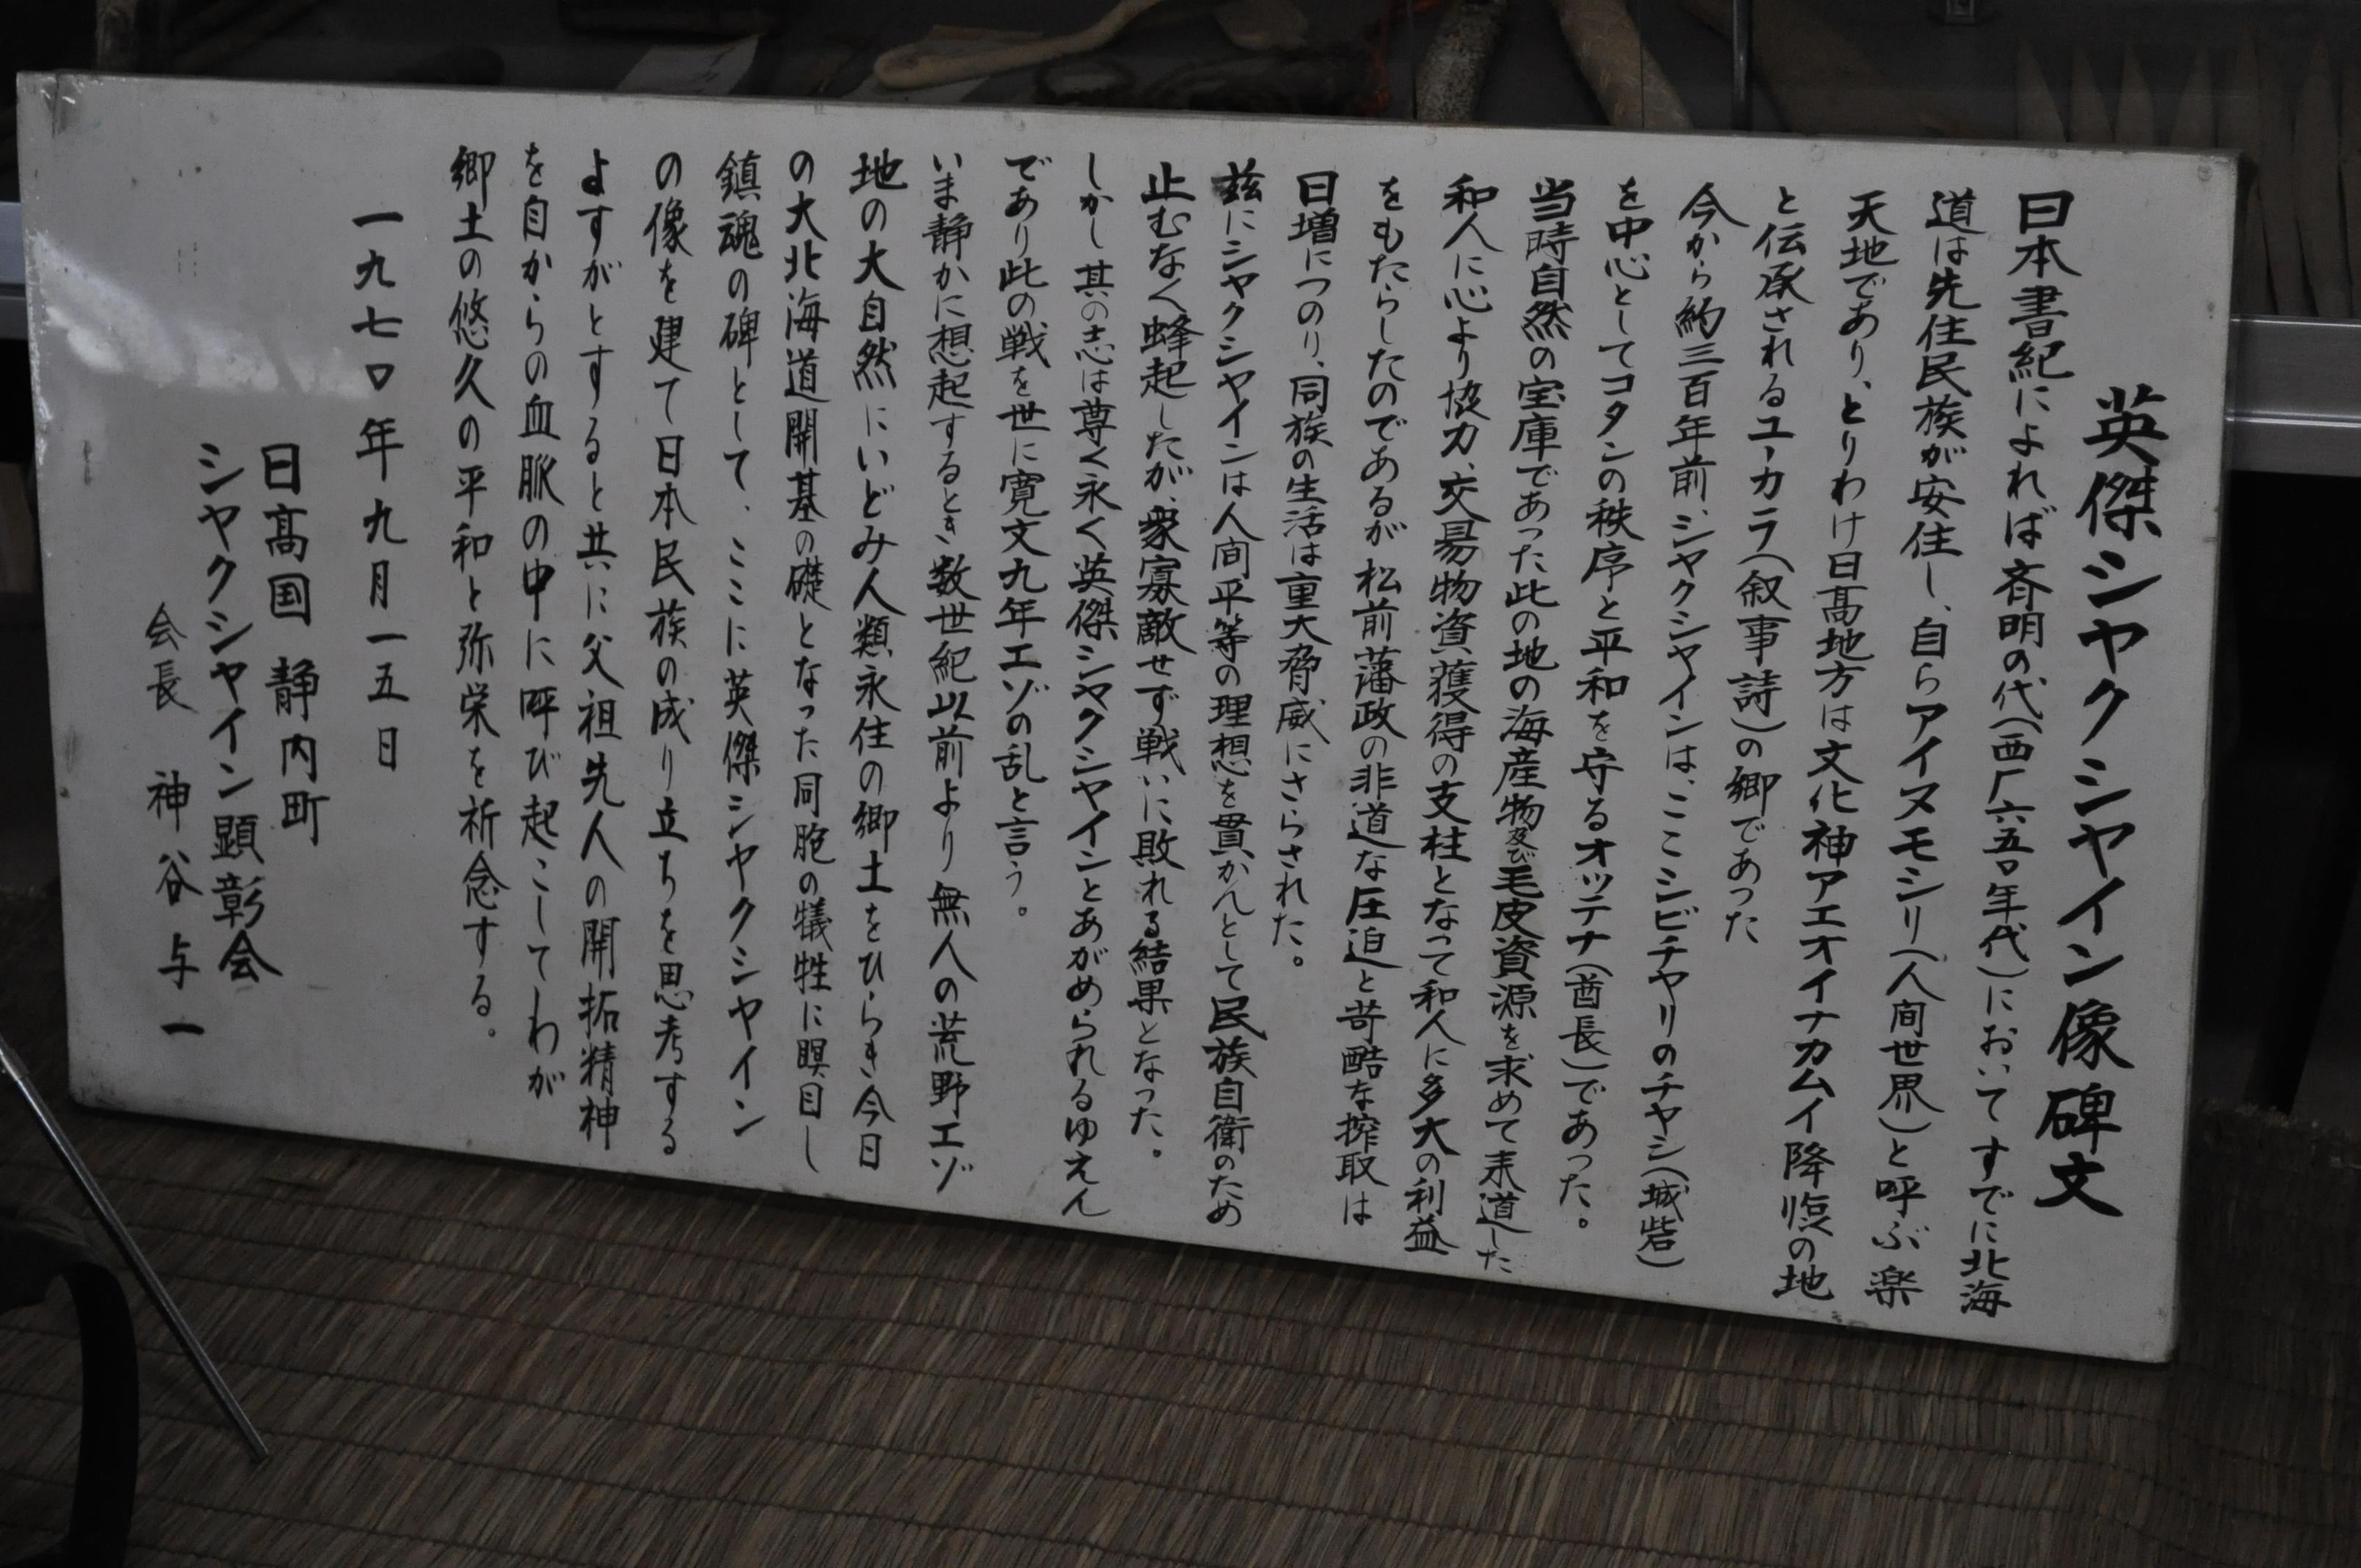 英傑シャクシャイン像碑文
日本書紀によれば斉明の代(西厂六五〇年代)においてすでに北海
道は先住民族が安住し、自らアイヌモシリ(人間世界)と呼ぶ楽
天地であり、とりわけ日高地方は文化神アエオイナカムイ降臨の地
と伝承されるユーカラ(叙事詩)の郷であった
今から約三百年前、シャクシャインは、ここシビチャリのチャシ(城砦)
を中心としてコタンの秩序と平和を守るオッテナ(酋長)であった。
当時自然の宝庫であった此の地の海産物及び毛皮資源を求めて来道した
和人に心より協力、交易物資獲得の支柱となって和人に多大の利益
をもたらしたのであるが松前藩政の非道な圧迫と苛酷な搾取は
日増につのり、同族の生活は重大脅威にさらされた。
茲にシャクシャインは人間平等の理想を貫かんとして民族自衛のため
止むなく蜂起したが、衆寡敵せず戦いに敗れる結果となった。
しかし其の志は尊く永く英傑シャクシャインとあがめられるゆえん
であり此の戦を世に寛文九年エゾの乱と言う。
いま静かに想起するとき数世紀以前より無人の荒野エゾ
地の大自然にいどみ人類永住の郷土をひらき今日
の大北海道開基の礎となった同胞の犠牲に瞑目し
鎮魂の碑として、ここに英傑シャクシャイン
の像を建て日本民族の成り立ちを思考する
よすがとすると共に父祖先人の開拓精神
を自からの血脈の中に呼び起こしてわが
郷土の悠久の平和と弥栄を祈念する。
一九七〇年九月一五日
日高国 静内町
シャクシャイン顕彰会
会長 神谷与一